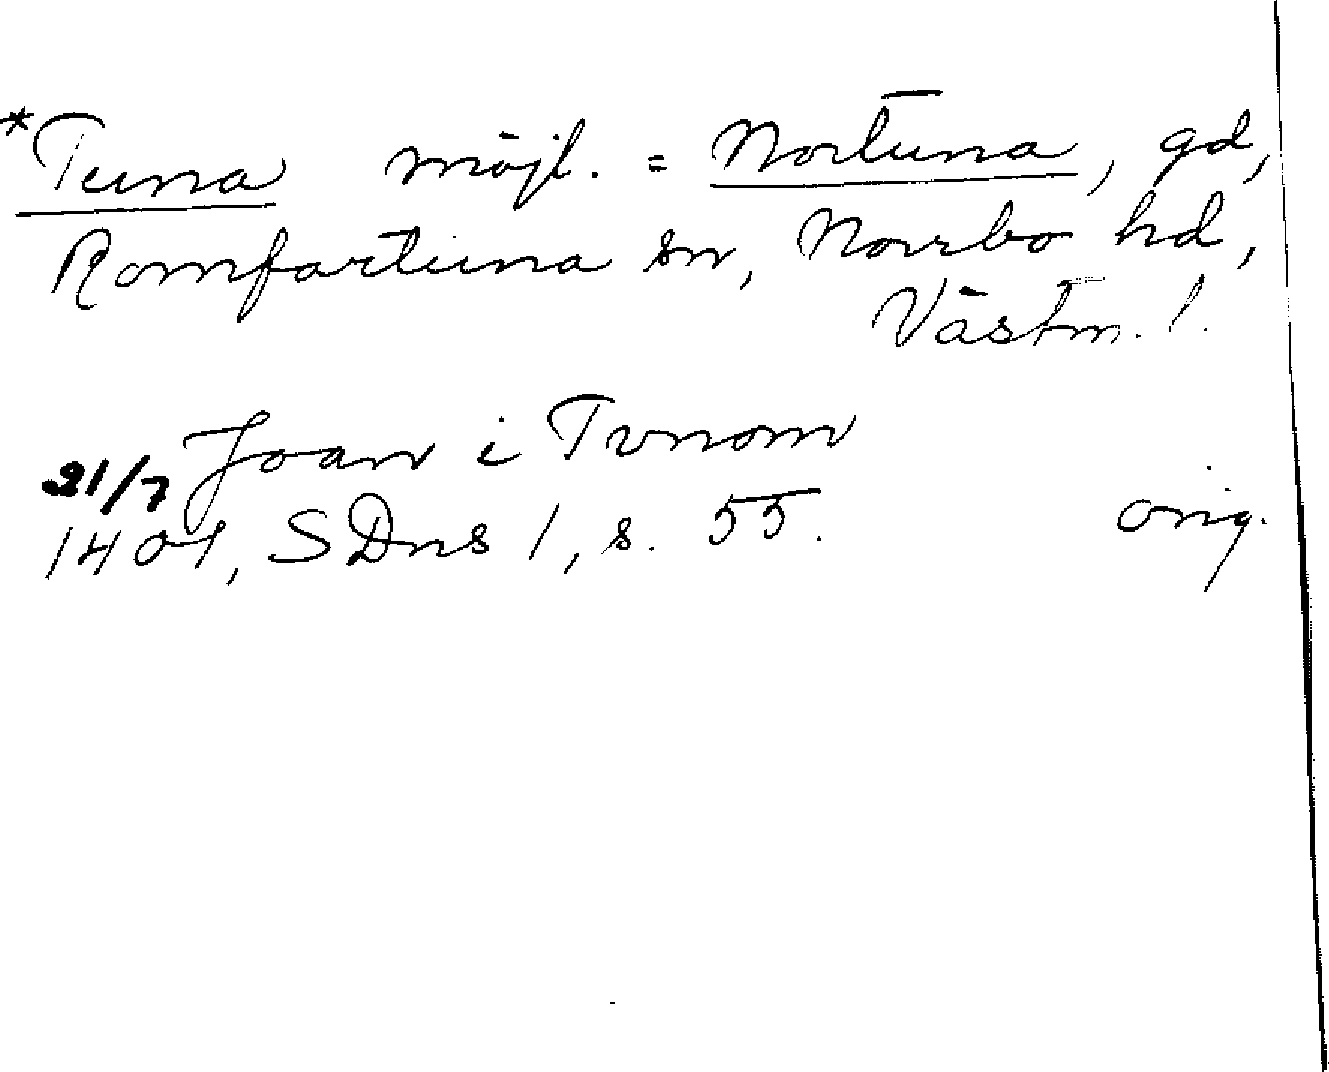 *Tuna möjl. = Nortuna, gd,
Romfartuna sn, Norrbo hd,
Västm. l.
Joan i Tvnom
21/7
1401, SDns 1, s. 55. orig.